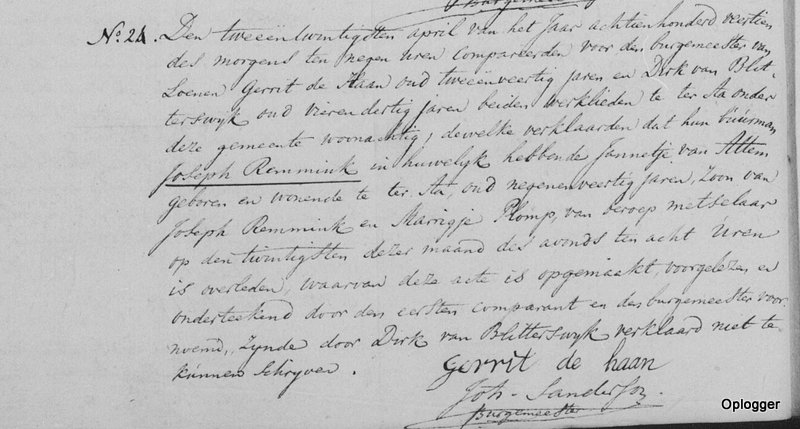 Burgemeester
No. 24. Den tweeëntwintigsten april van het Jaar achtienhonderd veertien
des morgens ten negen uren compareerden voor den burgemeester van
Loenen Gerrit de Haan oud tweeenveertig jaren en Dirk van Blit-
terswyk oud vierendertig jaren beiden werklieden te ter Aa onder
deze gemeente woonachtig, dewelke verklaarden dat hun buurman
Joseph Remmink in huwelyk hebbende Jannetje van Attem
geboren en wonende te ter Aa, oud negenenveertig jaren, Zoon van
Joseph Remmink en Marrigje Plomp, van beroep metselaar
op den twintigsten dezer maand des avonds ten acht Uren
is overleden, waarvan deze acte is opgemaakt, voorgelezen en
onderteekend door den eersten comparant en den burgemeester voor
noemd, zynde door Dirk van Blitterswyk verklaard niet te
kunnen Schryven.
gerrit de haan
Joh. Sanderson
Burgemeester
Oplogger